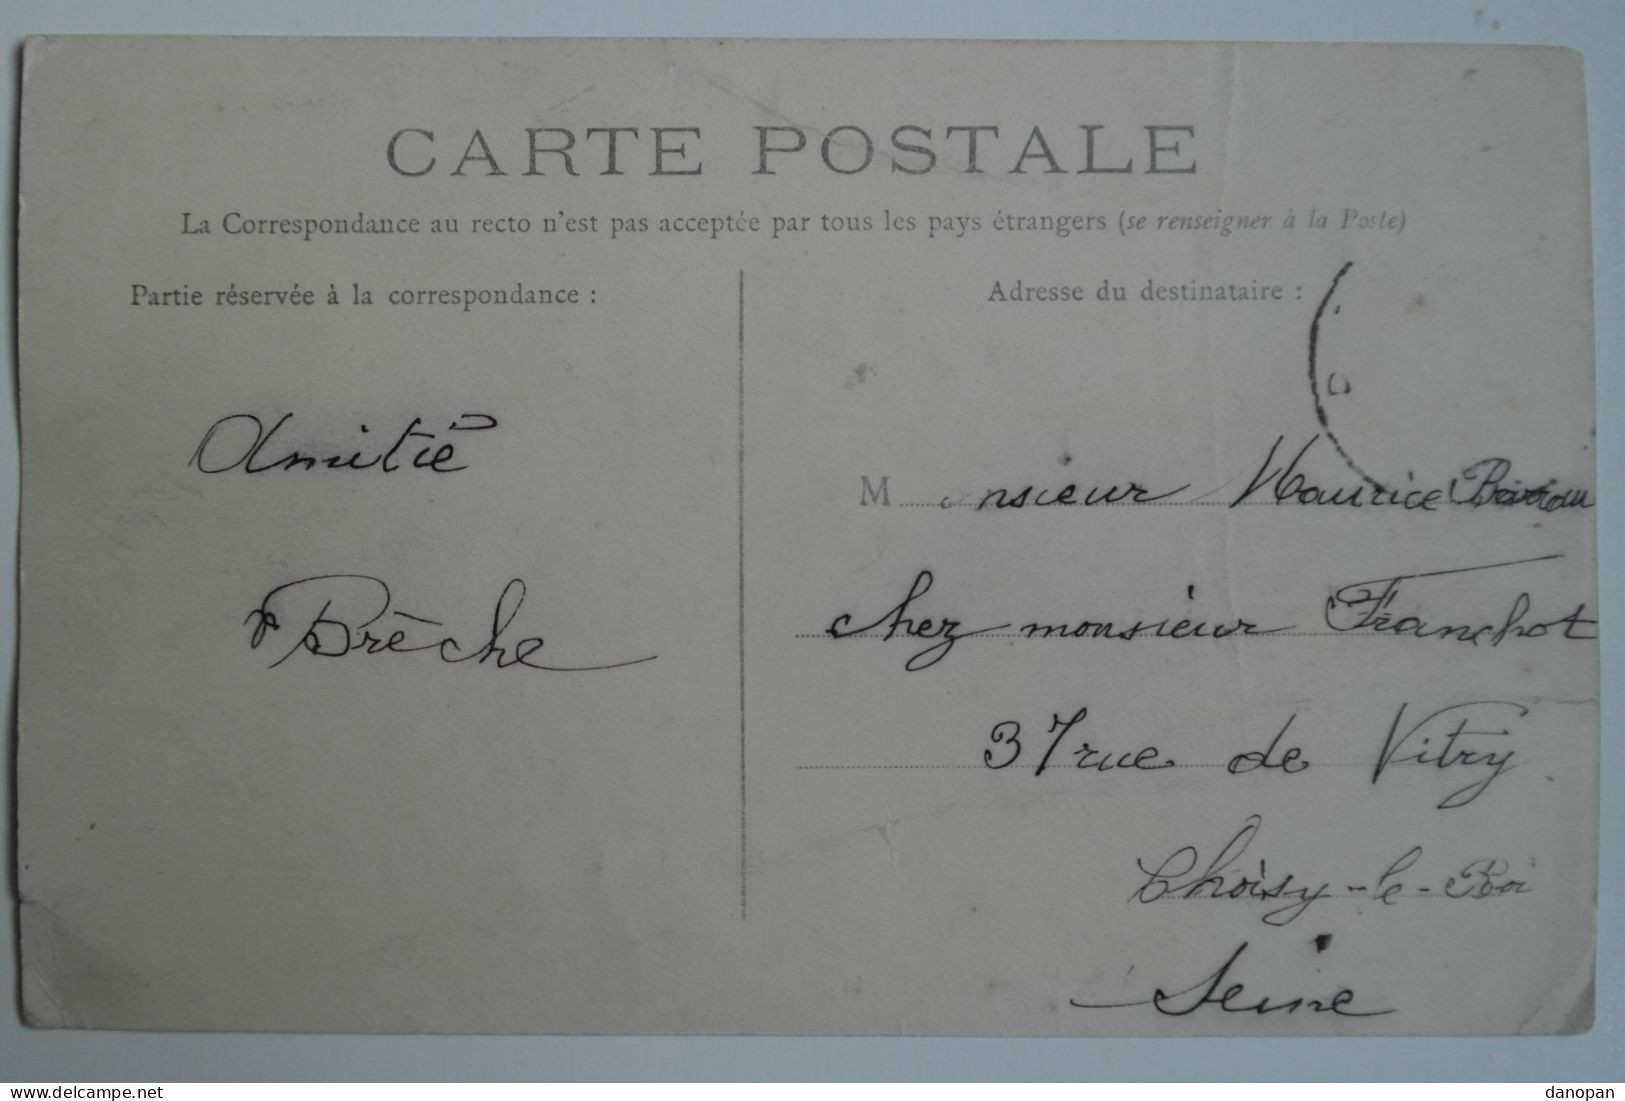 CARTE POSTALE
La Correspondance au recto n'est pas acceptée par tous les pays étrangers (se renseigner à la Poste)
Partie réservée à la correspondance :
Amitié
Brèche
Adresse du destinataire :
Monsieur Maurice
chez monsieur Franchot
37 rue de Vitry
Choisy-le-Roi
Seine
www.delcampe.net
danopan